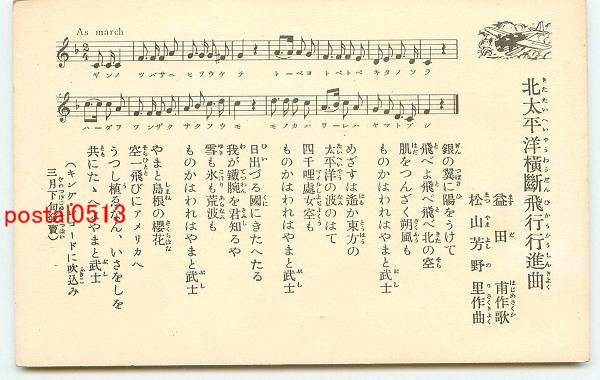 As march
ギンノ ツバサニヒヲウケテ トベヨトベトベキタノソラ
ハダヲツンザクサクフウモ モノカハワレハヤマトブシ
北太平洋横斷飛行行進曲
きたたいへいやうわうだんひかうかうしんきよく
益田 甫作歌
松山芳野里作曲
銀の翼に陽をうけて
飛べよ飛べ飛べ北の空
肌をつんざく朔風も
ものかはわれはやまと武士
めざすは遥か東方の
太平洋の波のはて
四千哩處女空も
ものかはわれはやまと武士
日出づる國にきたへたる
我が鐵腕を君知るや
雪も氷も荒波も
ものかはわれはやまと武士
やまと島根の櫻花
空一飛びにアメリカへ
うつし植ゑなん、いさをしを
共にたゝへよやまと武士
(キングレコードに吹込み
三月下旬發賣)
postal0513